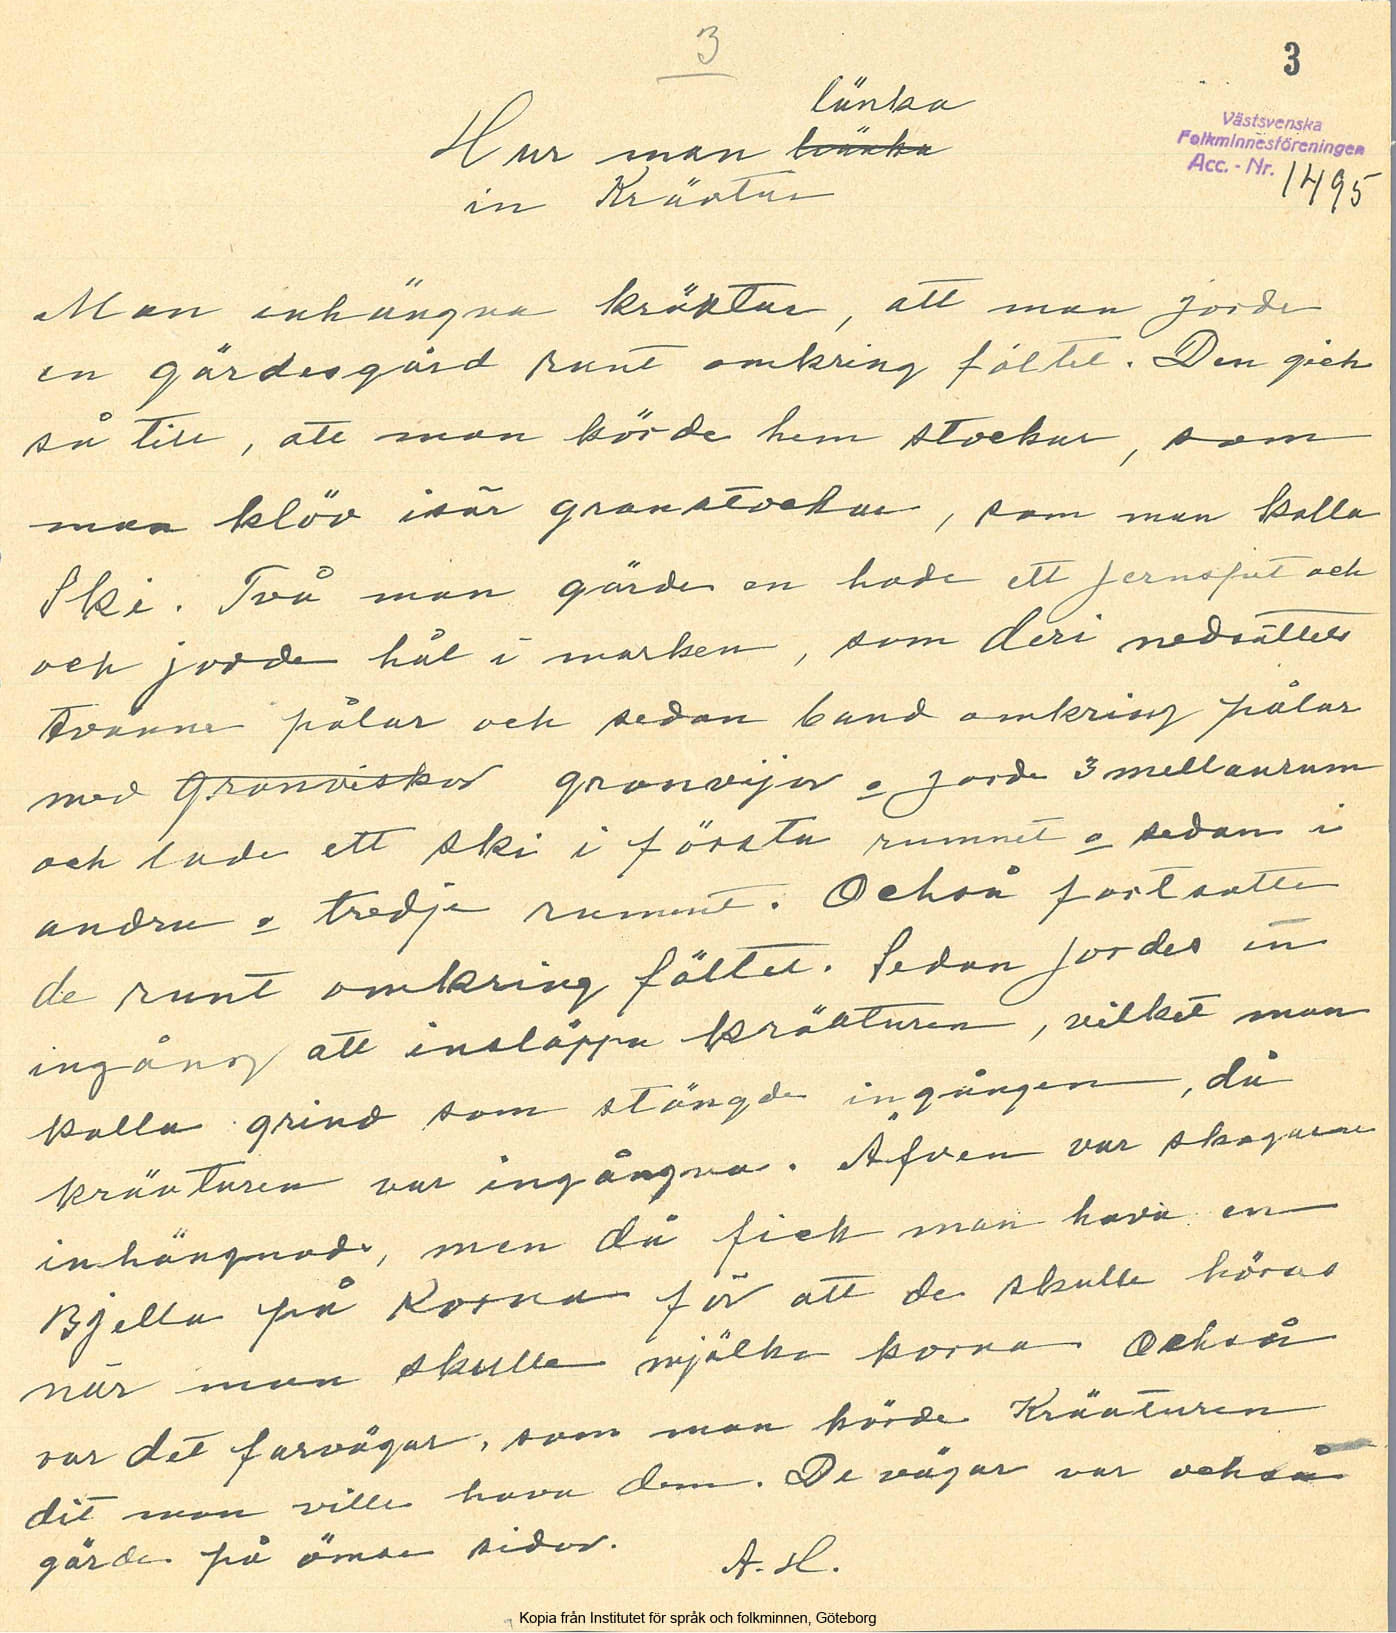 3
3
länka
Hur man
in Kräatur
Västsvenska
Folkminnesföreningen
Acc. - Nr. 1495
Man inhängna kräktur, att man jorde
en gärdesgård runt omkring fältet. Den gick
så till, att man körde hem stockar, som
man klöv isär granstockar, som man kalla
Ski. Två man gärde en hade ett jernspet och
och jorde hål i marken, som deri nedsättets
tvänne pålar och sedan band omkring pålar
med Granviskor granvijor o jorde 3 mellanrum
och lade ett ski i första rummet o sedan i
andra o tredje rummet. Också fortsatte
de runt omkring fältet. Sedan jordes en
ingång att insläppa kräaturen, vilket man
kalla grind som stängde ingången, då
kräaturen var ingångna. Äfven var skogarne
inhängnade, men då fick man hava en
Bjella på Korna för att de skulle höras
när man skulle mjölka korna Också
var det farvägar, som man körde Kräaturen
dit man ville hava dem. De vägar var också
gärde på ömse sidor.
A. H.
Kopia från Institutet för språk och folkminnen, Göteborg